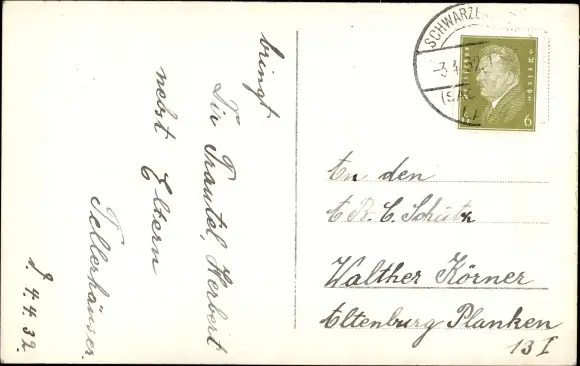 bringt
Dir Trautel, Herbert
nebst Eltern
Tellerhäuser.
d. 4.4.32.
SCHWARZEN
-3.4.32.
(SAC
6
An den
A.B.C. Schütz
Walther Körner
Altenburg Planken
13 I